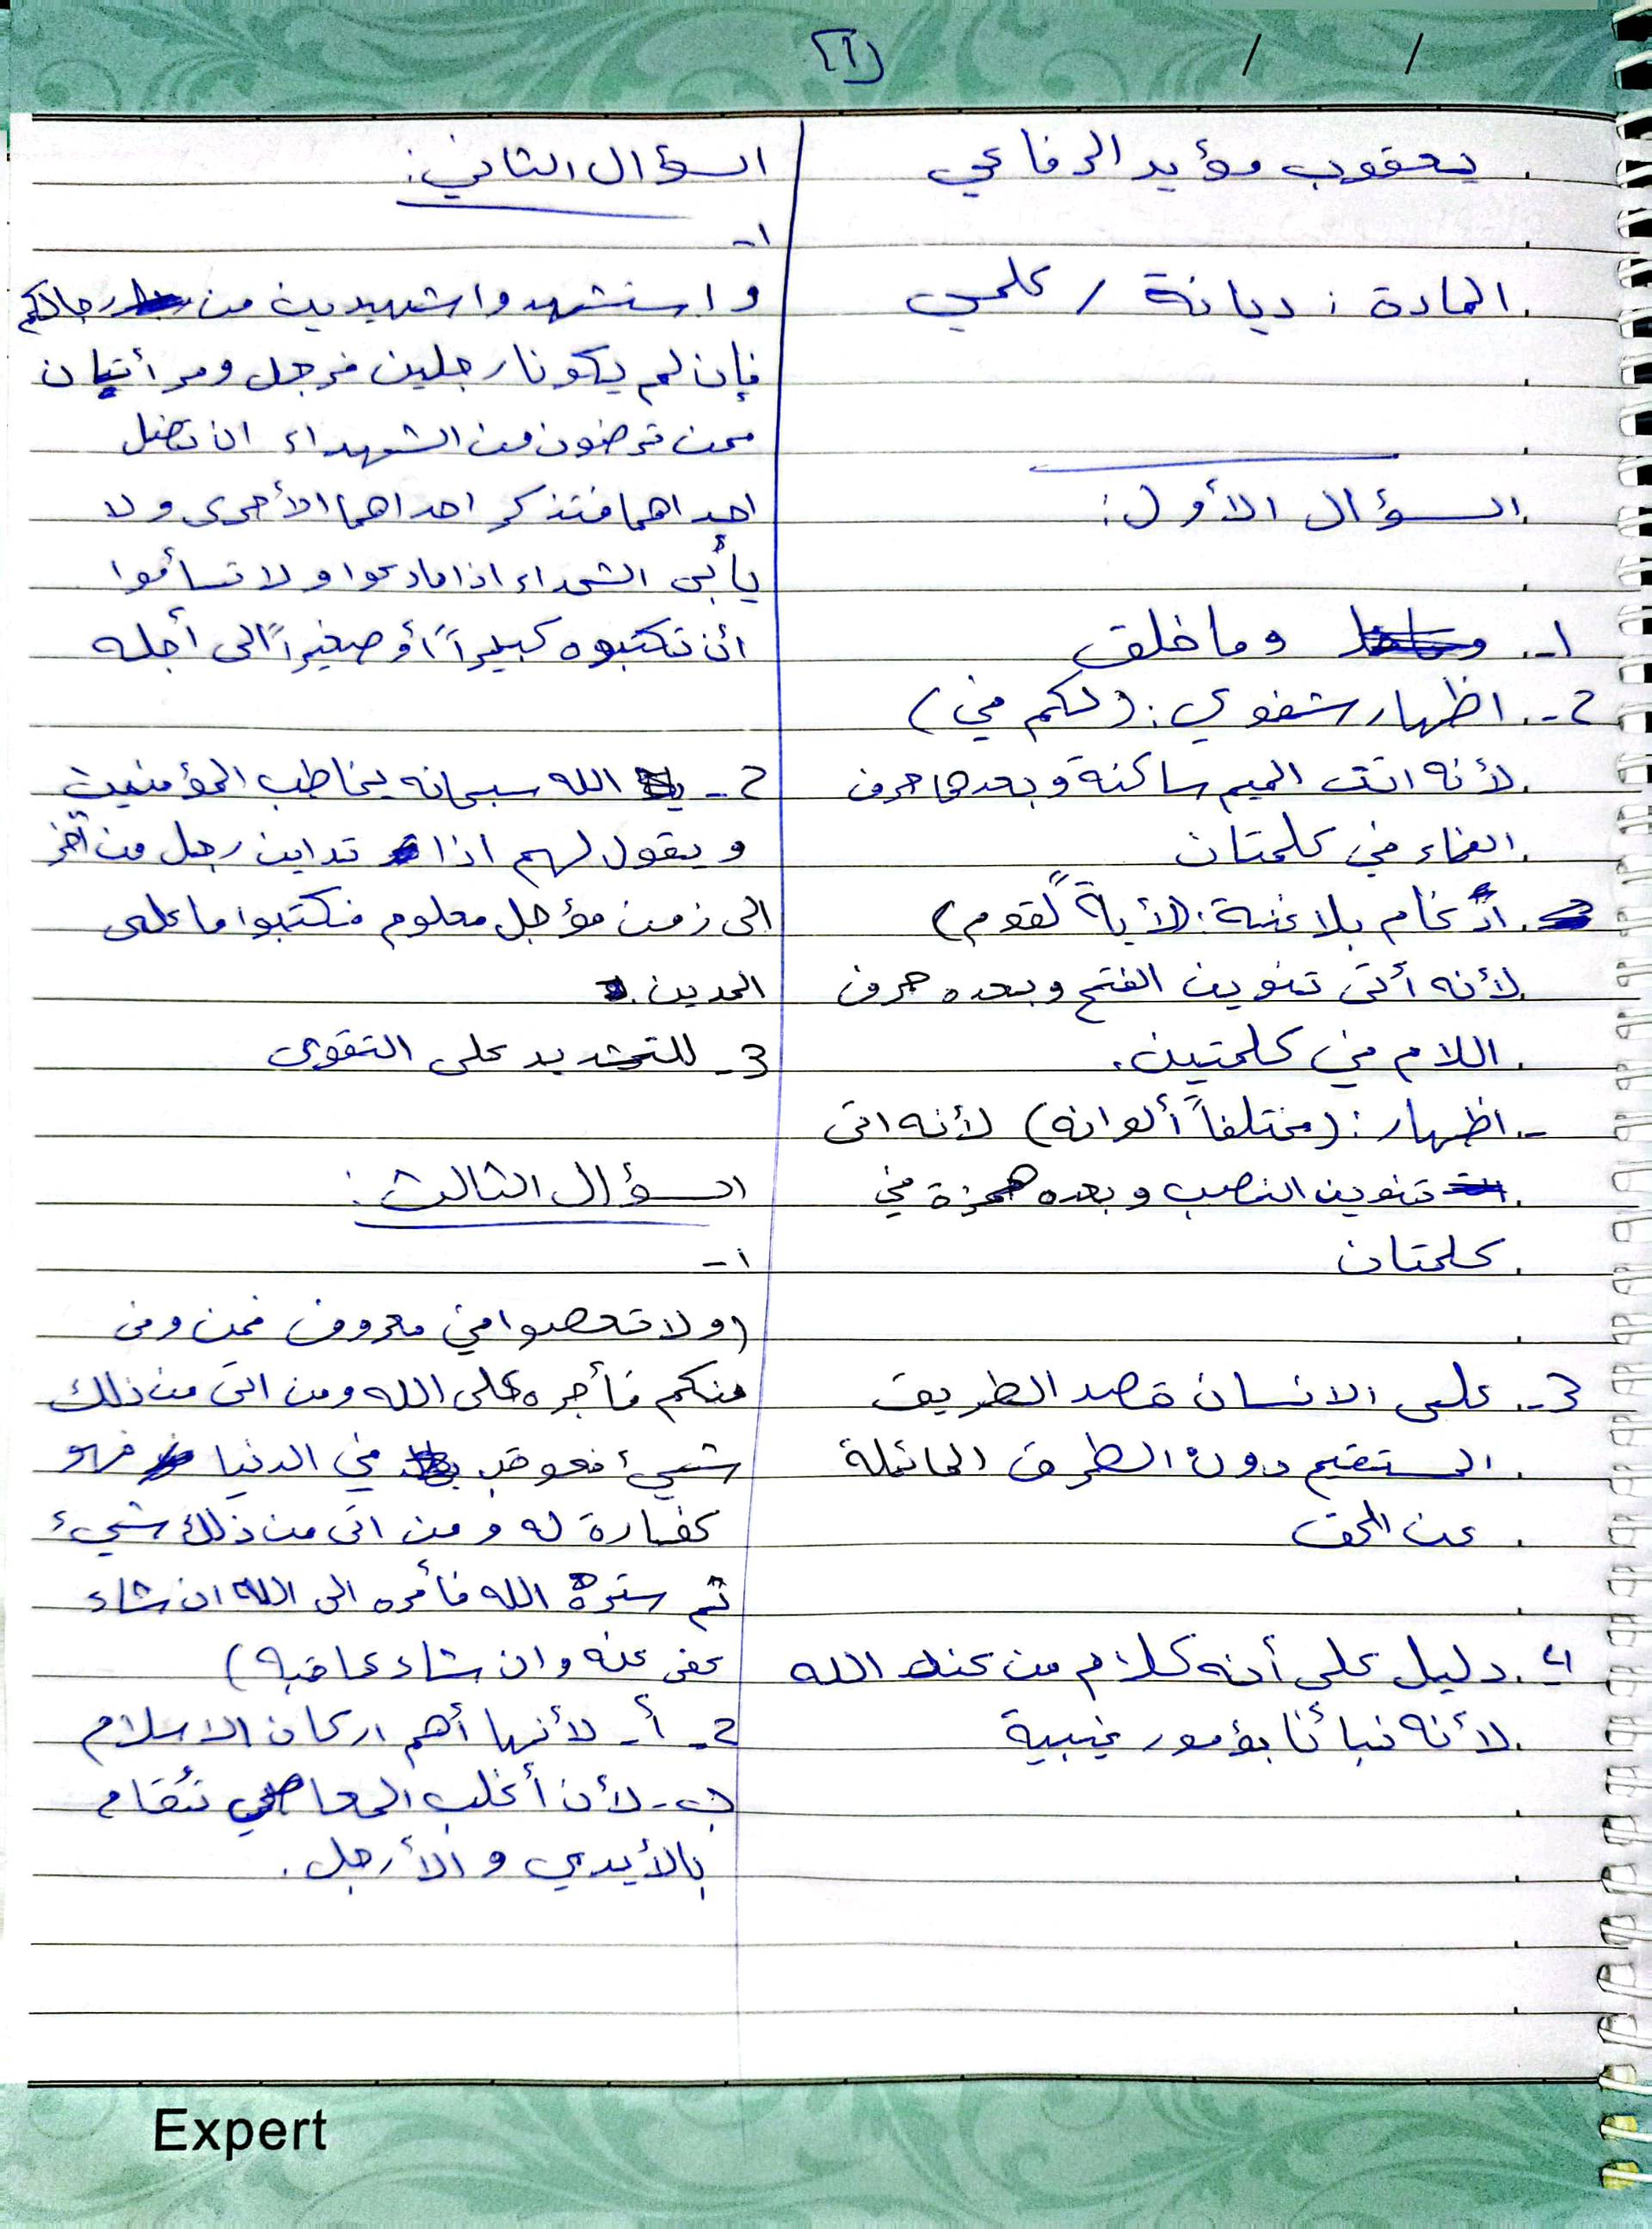 [1]
/ /
يعقوب مؤيد الرفاعي
المادة : ديانة / علمي
السؤال الأول:
1- وما خلق
2- اظهار شفوي: (لكم في)
لأنه اتت الميم ساكنة وبعدها حرف
الفاء في كلمتان
ادغام بلا غنة: (لأيةً لقوم)
لأنه أتى تنوين الفتح وبعده حرف
اللام في كلمتين.
- اظهار: (مختلفاً ألوانه) لأنه اتى
تنوين النصب وبعده همزة في
كلمتان
3- على الانسان قصد الطريق
المستقيم دون الطرق المائلة
عن الحق
4. دليل على أنه كلام من عند الله
لأنه نبائنا بؤمور غيبية
السؤال الثاني:
1-
واستشهدوا شهيدين من رجالكم
فإن لم يكونا رجلين فرجل ومرأتان
ممن ترضون من الشهداء ان تضل
احداهما فتذكر احداهما الأخرى ولا
يأبى الشهداء اذا ما دعوا ولا تسأموا
أن تكتبوه كبيراً أو صغيراً الى أجله
2- الله سبحانه يخاطب المؤمنين
ويقول لهم اذا تداين رجل من أخر
الى زمن مؤجل معلوم فكتبوا ما على
المدين.
3- للتشديد على التقوى
السؤال الثالث:
1-
(ولا تعصوا في معروف فمن وفى
منكم فأجره على الله ومن اتى من ذلك
شيء فعوقب في الدنيا فهو
كفارة له ومن اتى من ذلك شيء
ثم ستره الله فأمره الى الله ان شاء
عفى عنه وان شاء عاقبه)
2- أ- لأنها أهم اركان الاسلام
ب- لأن أغلب المعاصي تُقام
بالأيدي والأرجل.
Expert